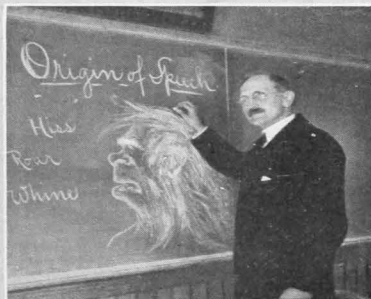 Origin of Speech
Hiss
Roar
Whine